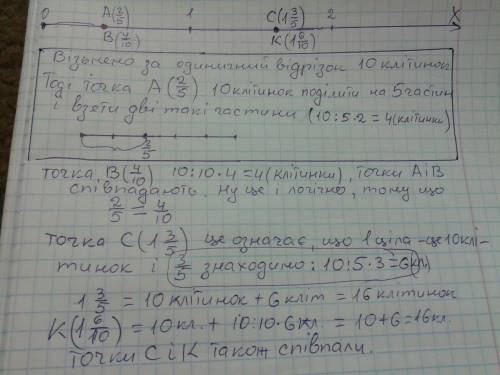 0 A(2/5) 1 C(1 3/5) 2 X
B(4/10) K(1 6/10)
Візьмемо за одиничний відрізок 10 клітинок
Тоді точка A(2/5) 10 клітинок поділити на 5 частин
і взяти дві такі частини (10:5·2=4(клітинки)
точка B(4/10) 10:10·4=4(клітинки), точки A і B
співпадають. Ну це і логічно, тому що
2/5 = 4/10
точка C(1 3/5) це означає, що 1 ціла - це 10 клі-
тинок і 3/5 знаходимо: 10:5·3=6кл
1 3/5 = 10 клітинок + 6 кліт = 16 клітинок
K(1 6/10) = 10 кл. + 10:10·6 кл. = 10+6=16кл.
Точки C і K також співпали.